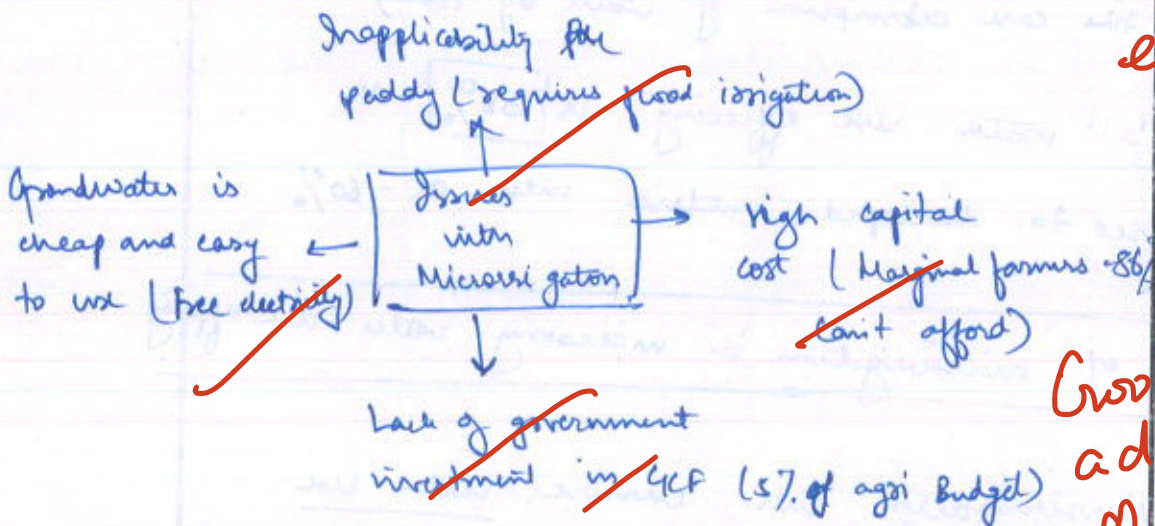 Inapplicability for
paddy (requires flood irrigation)
Groundwater is
cheap and easy
to use (Free electricity)
Issues
with
Microirrigation
high capital
cost (Marginal farmers - 86%
can't afford)
Lack of government
investment in GCF (5% of agri Budget)